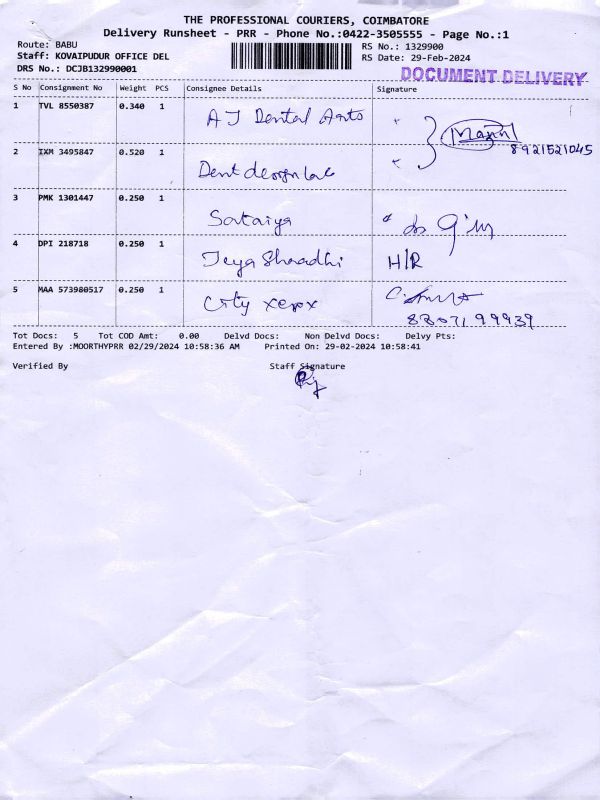 THE PROFESSIONAL COURIERS, COIMBATORE
Delivery Runsheet - PRR - Phone No.:0422-3505555 - Page No.:1
Route: BABU
Staff: KOVAIPUDUR OFFICE DEL
DRS No.: DCJB132990001
RS No.: 1329900
RS Date: 29-Feb-2024
DOCUMENT DELIVERY
S No Consignment No Weight PCS Consignee Details Signature
1 TVL 8550387 0.340 1 AJ Dental Arts
8921521045
2 IXM 3495847 0.520 1 Dent design lab
3 PMK 1301447 0.250 1
4 DPI 218718 0.250 1 Jeya Shraadhi H/R
5 MAA 573980517 0.250 1 City xerox
8807199939
Tot Docs: 5 Tot COD Amt: 0.00 Delvd Docs: Non Delvd Docs: Delvy Pts:
Entered By :MOORTHYPRR 02/29/2024 10:58:36 AM Printed On: 29-02-2024 10:58:41
Verified By Staff Signature